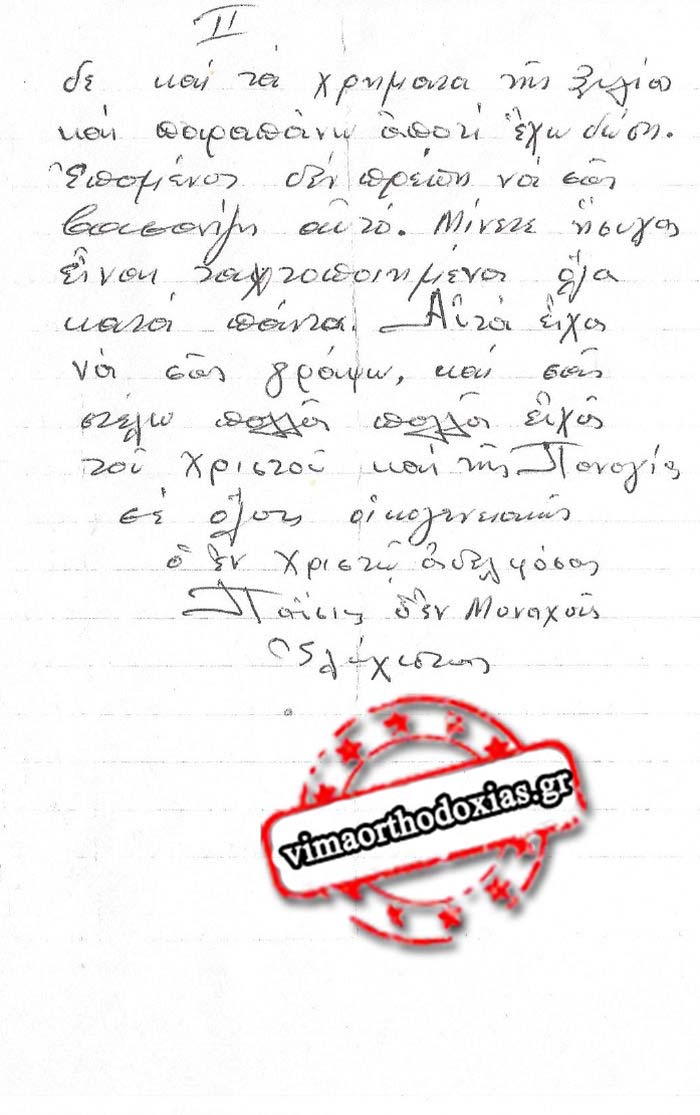 II
δε καί τά χρηματα τῆς ξυλίας
καί παραπάνω ἀποτί ἔχω δώση.
Ἑπομένος δέν πρέπη νά σᾶς
βασανίζη αὐτό. Μίνετε ἥσυχος
εἶναι ταχτοποιημένα ὅλα
κατά πάντα. Αὐτά εἶχα
νά σᾶς γράψω, καί σᾶς
στέλω πολλές πολλές εὐχές
τοῦ Χριστοῦ καί τῆς Παναγίας
σέ ὅλους οἰκογενειακῶς
ὁ ἐν Χριστῷ ἀδελφόσας
Παΐσιος ὁ ἐν Μοναχοῖς
Ἐλάχιστος
vimaorthodoxias.gr